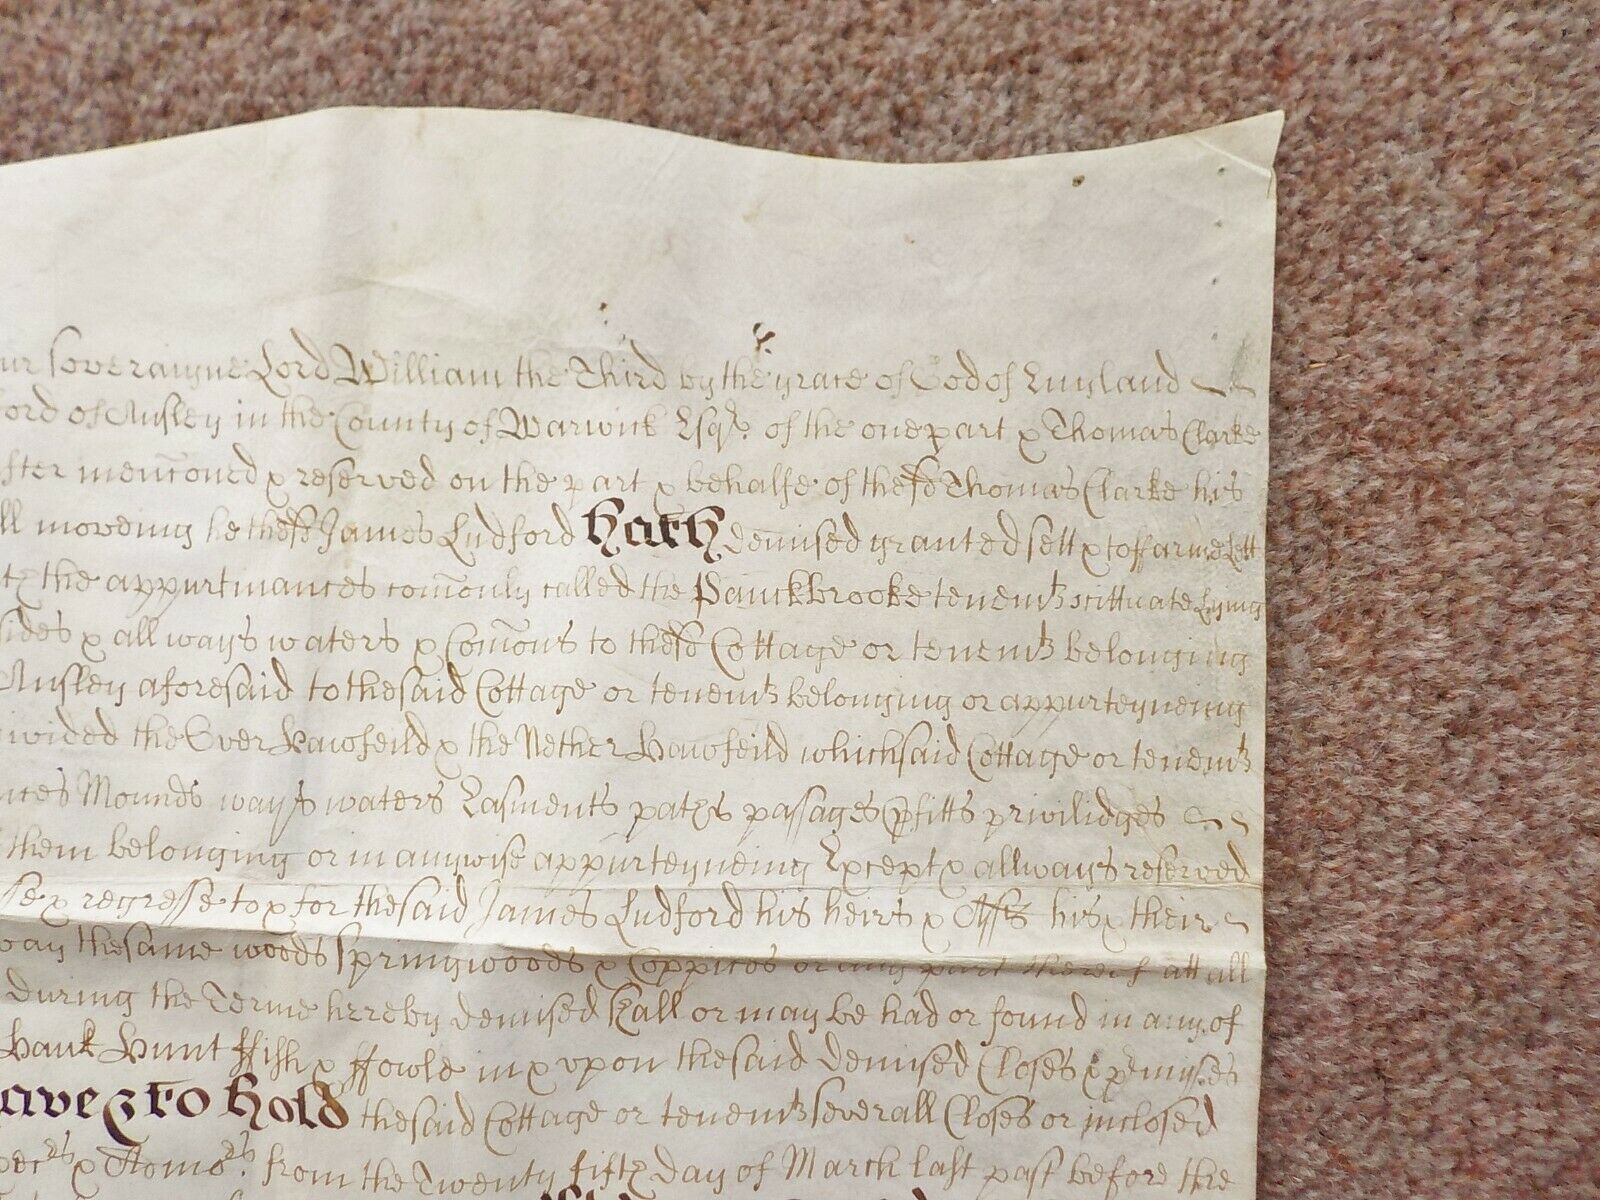 ur soveraigne Lord William the Third by the grace of God of England
ford of Ansley in the County of Warwick Esqr. of the one part & Thomas Clarke
fter menc̄oned & reserved on the part & behalfe of the sd Thomas Clarke his
ll moveing he the sd James Ludford Hath demised granted sett & to ffarme Lett
the appurtinances com̄only called the Panckbrooke tenemt scittuate lying
sides & all ways waters & Com̄ons to the sd Cottage or tenemt belonging
Ansley aforesaid to the said Cottage or tenemt belonging or appurteyneing
ivided the Over Hawfeild & the Nether Hawfeild which said Cottage or tenemt
nces Mounds ways waters Easments paths passages pfitts privilidges
them belonging or in anywise appurteyneing Except & allways reserved
sse & regresse to & for the said James Ludford his heirs & Asss his & their
way the same woods springwoods & Coppices or any part thereof att all
during the Terme hereby demised shall or may be had or found in any of
Hauk Hunt ffish & ffowle in & upon the said demised Closes & pemisses
ave & to Hold the said Cottage or tenemt severall Closes or inclosed
from the Twenty fifth day of March last past before the